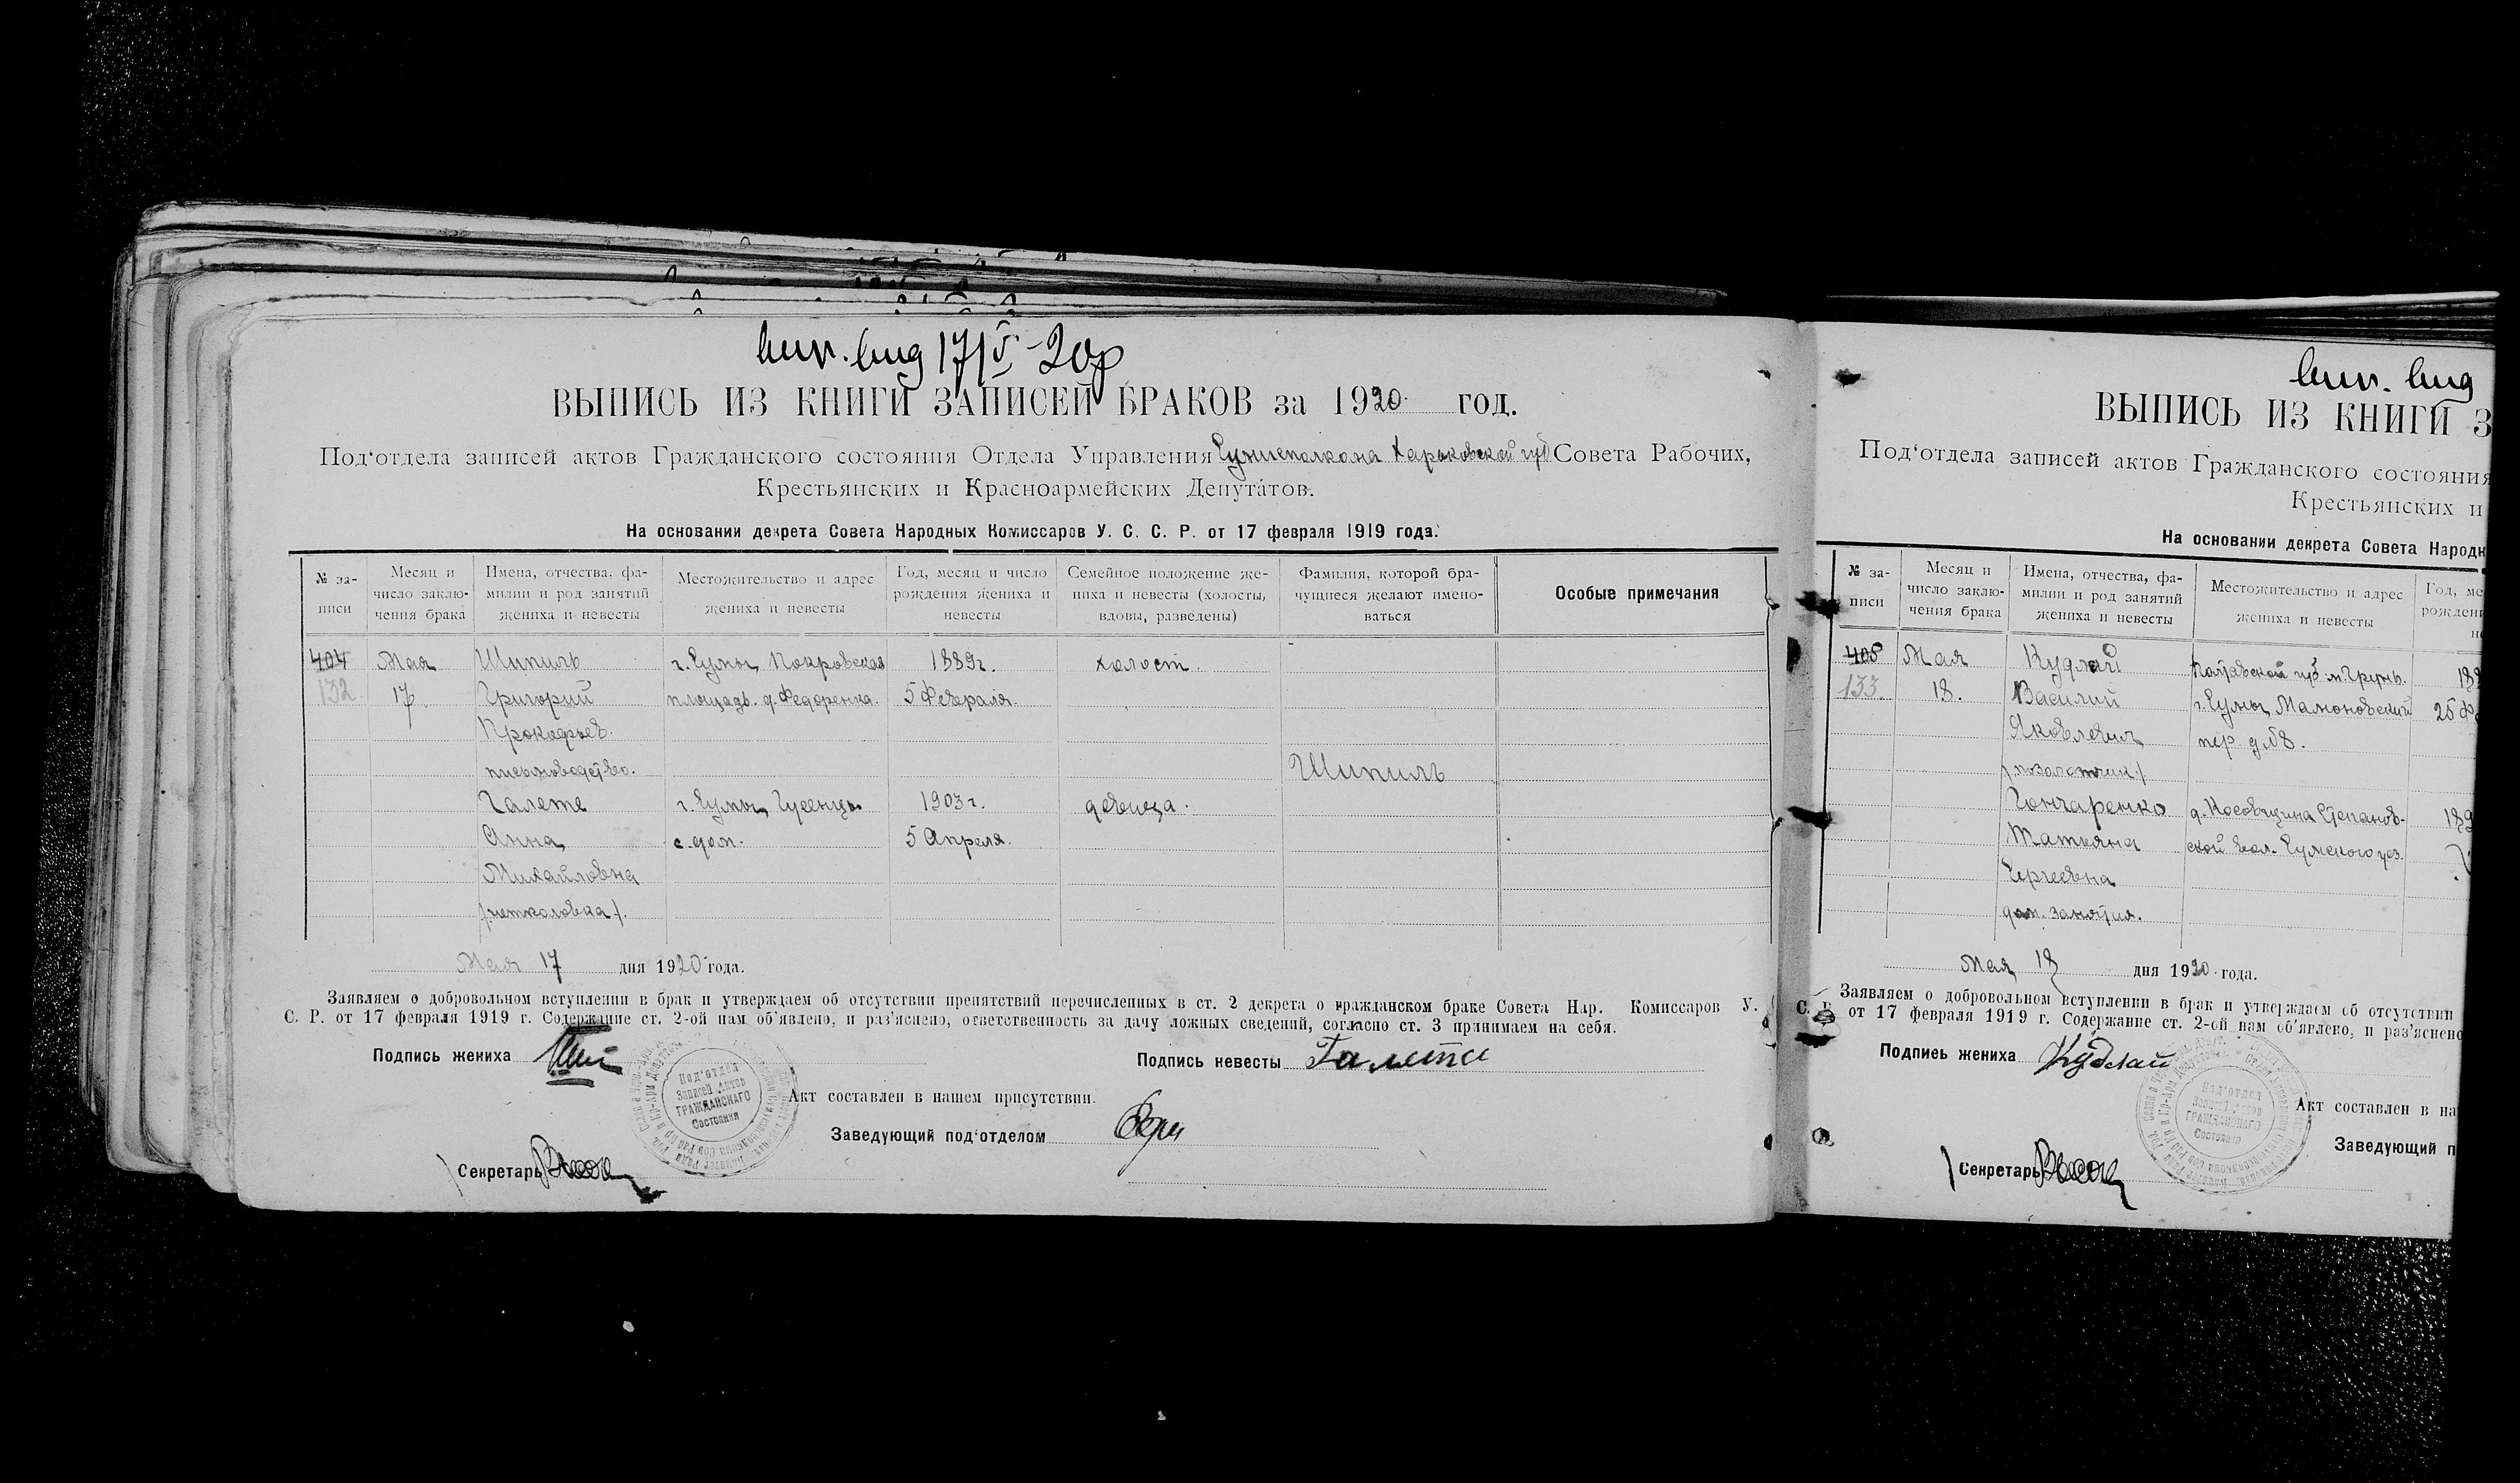 17/V-20г
ВЫПИСЬ ИЗ КНИГИ ЗАПИСЕЙ БРАКОВ за 1920 год.
Под‘отдела записей актов Гражданского состояния Отдела Управления Сумисполкома Харьковской губ Совета Рабочих,
Крестьянских и Красноармейских Депутатов.
На основании декрета Совета Народных Комиссаров У. С. С. Р. от 17 февраля 1919 года.
№ записи
Месяц и число заключения брака
Имена, отчества, фамилии и род занятий жениха и невесты
Местожительство и адрес жениха и невесты
Год, месяц и число рождения жениха и невесты
Семейное положение жениха и невесты (холосты, вдовы, разведены)
Фамилия, которой брачущиеся желают именоваться
Особые примечания
404 Мая Шипиль г. Сумы, Покровская 1889г. холост
132 17. Григорий площадь. д. Федоренка. 5 Февраля.
Прокофьев.
письмоводство. Шипиль
Галете г. Сумы, 1903 г. девица.
Анна с. дом. 5 Апреля.
Михайловна
Мая 17 дня 1920 года.
Заявляем о добровольном вступлении в брак и утверждаем об отсутствии препятствий перечисленных в ст. 2 декрета о гражданском браке Совета Нар. Комиссаров У. С.
С. Р. от 17 февраля 1919 г. Содержание ст. 2-ой нам об‘явлено, и раз‘яснено, ответственность за дачу ложных сведений, согласно ст. 3 принимаем на себя.
Подпись жениха
Подпись невесты Галете
Под‘отдел
Записей Актов
ГРАЖДАНСКАГО
Состояния
Акт составлен в нашем присутствии.
Заведующий под‘отделом
Секретарь
ВЫПИСЬ ИЗ КНИГИ З
Под‘отдела записей актов Гражданского состояния
Крестьянских и
На основании декрета Совета Народн
№ записи
Месяц и число заключения брака
Имена, отчества, фамилии и род занятий жениха и невесты
Местожительство и адрес жениха и невесты
Год, ме
рождени
405 Мая Кудлай Полтавской губ м. Грунь.
133. 18. Василий г. Сумы, Мамоновский 25 Ф
Яковлевич пер д №8.
Гончаренко д. Косовщина Степанов-
Татьяна ской вол. Сумского уез.
Сергеевна
дом. занятия.
Мая 18 дня 1920 года.
Заявляем о добровольном вступлении в брак и утверждаем об отсутствии
от 17 февраля 1919 г. Содержание ст. 2-ой нам об‘явлено, и раз‘яснено
Подпись жениха Кудлай
Под‘отдел
Записей Актов
ГРАЖДАНСКАГО
Состояния
Акт составлен в на
Заведующий п
Секретарь